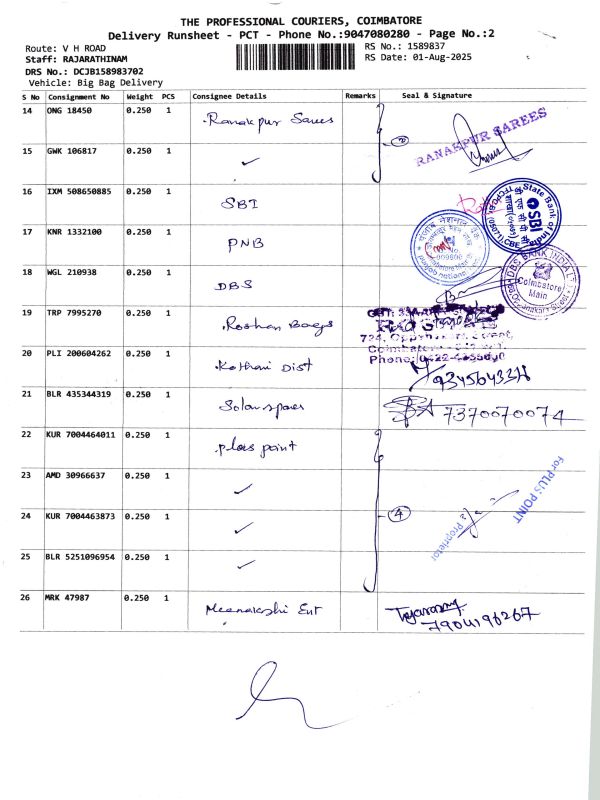 THE PROFESSIONAL COURIERS, COIMBATORE
Delivery Runsheet - PCT - Phone No.:9047080280 - Page No.:2
Route: V H ROAD
Staff: RAJARATHINAM
DRS No.: DCJB158983702
Vehicle: Big Bag Delivery
RS No.: 1589837
RS Date: 01-Aug-2025
S No Consignment No Weight PCS Consignee Details Remarks Seal & Signature
14 ONG 18450 0.250 1 Ranakpur Sarees
2
RANAKPUR SAREES
15 GWK 106817 0.250 1 ✓
16 IXM 508650885 0.250 1 SBI
State Bank of India
SBI
17 KNR 1332100 0.250 1 PNB
18 WGL 210938 0.250 1 DBS
DBS BANK INDIA LTD
Coimbatore
Main
19 TRP 7995270 0.250 1 Roshan Bags
20 PLI 200604262 0.250 1 Kothari Dist
21 BLR 435344319 0.250 1 Solar spares 7370070074
22 KUR 7004464011 0.250 1 plus point
23 AMD 30966637 0.250 1 ✓
For PLUS POINT
Proprietor
24 KUR 7004463873 0.250 1 ✓
4
25 BLR 5251096954 0.250 1 ✓
26 MRK 47987 0.250 1 Meenakshi Ent
7904196267